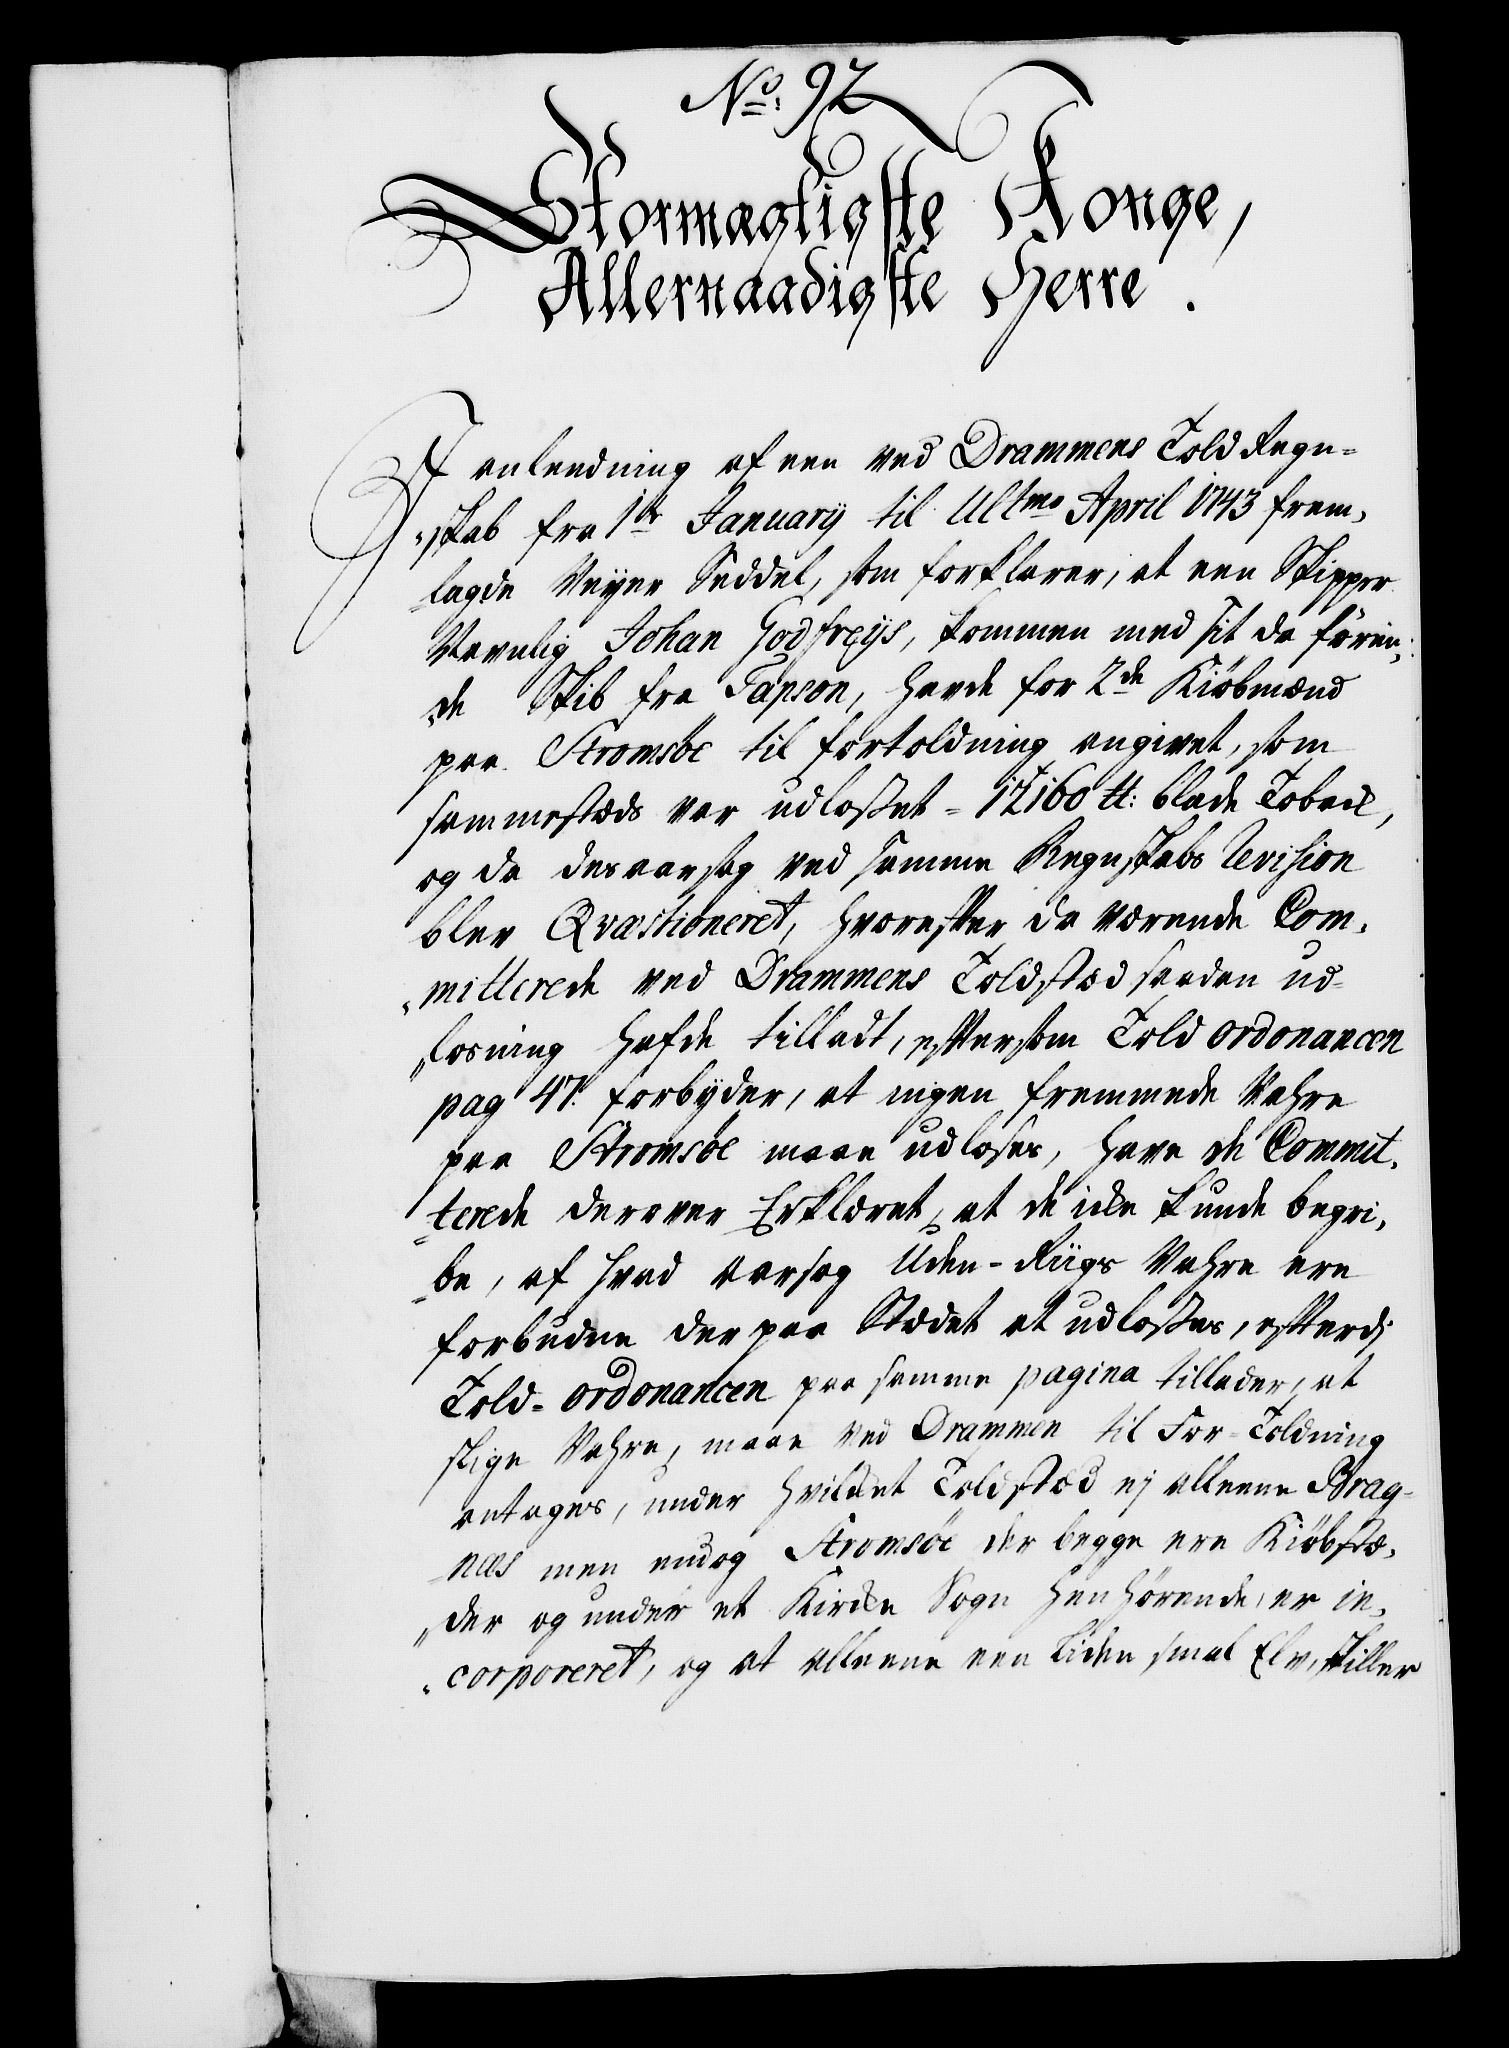 No: 92
Stormægtigste Konge,
Allernaadigste Herre.
I anledning af een ved Drammens Told Regn=
„skab fra 1te Januarij til Ultmo April 1743 frem,
„lagde Veyer Seddel, som forklarer, at een Skipper
Navnlig Johan Godfreijs, kommen med sit da förin,
„de Skib fra Tapson, havde for 2de Kiöbmænd
paa Stromsöe til fortoldning angivet, som
sammestæds var udlosset = 12160 tt: blade Toback,
og da desaarsag ved samme Regnskabs Revision
blev Qvæstioneret, hvorefter da værende Com,
„mitterede ved Drammens Toldstæd saadan ud=
„losning hafde tilladt, eftersom Told ordonancen
pag 47. forbyder, at ingen fremmede Vahre
paa Stromsöe maae udloses, have de Commit,
„terede derover Erklæret, at de icke kunde begri,
„be, af hvad aarsag Uden-Riigs Vahre ere
forbudne der paa Stædet at udlosses, efterdj
Told-ordonancen paa samme pagina tillader, at
slige Vahre, maae ved Drammen til For-Toldning
antages, under hvilcket Toldstæd ej alleene Brag=
næs men endog Stromsöe der begge ere Kiöbstæ,
„der og under et Kircke Sogn henhörende, er in,
„corporeret, og at alleene een liden smal Elv, skiller